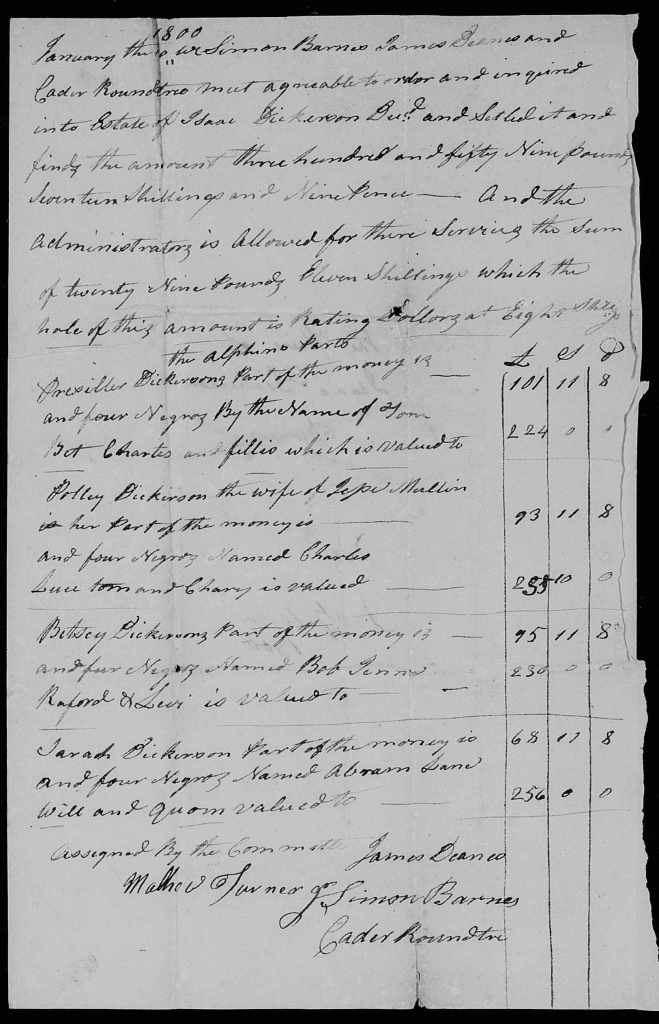 1800
January the 10 we Simon Barnes James Deanes and
Cader Roundtree meet agreable to order and inquired
into Estate of Isaac Dickerson Decd and Setled it and
findz the amount three hundred and fifty Nine poundz
Seventeen Shillings and Nine Pence — And the
administratorz is allowed for there Servicez the Sum
of twenty Nine Poundz Eleven Shillings which the
hole of thiz amount is Rating Dollorz at Eight Shillings
the Parts
Dickersonz Part of the money iz — £ S D
101 11 8
and four Negroz By the Name of Tom
Bet Charles and fillis which is valued to 224 0 0
Polley Dickerson the wife of Mullin
is her Part of the money is — 93 11 8
and four Negroz Named Charles
Luce tom and Chary is valued — 10 0
Betsey Dickersonz Part of the money iz — 95 11 8
and fur Negroz Named Bob
Raford & Levi is valued to — 230 0 0
Sarah Dickerson Part of the money is 68 11 8
and four Negroz Named Abram Lane
Will and Quom valued to — 256 0 0
Assigned By the Committe James Deanes
Mathew Turner Jr Simon Barnes
Cader Roundtre